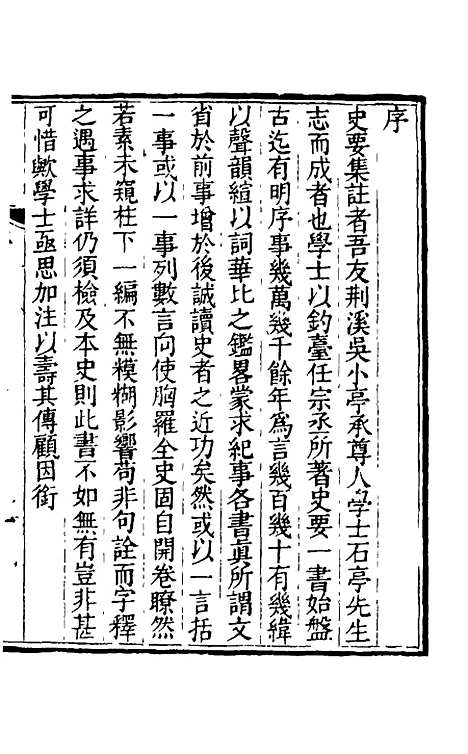 序
史要集註者吾友荆溪吳小亭承尊人學士石亭先生
志而成者也學士以釣臺任宗丞所著史要一書始盤
古迄有明序事幾萬幾千餘年爲言幾百幾十有幾緯
以聲韻縇以詞華比之鑑畧蒙求紀事各書眞所謂文
省於前事增於後誠讀史者之近功矣然或以一言括
一事或以一事列數言向使胸羅全史固自開卷瞭然
若素未窺柱下一編不無模糊影響苟非句詮而字釋
之遇事求詳仍須檢及本史則此書不如無有豈非甚
可惜歟學士亟思加注以壽其傳顧因銜